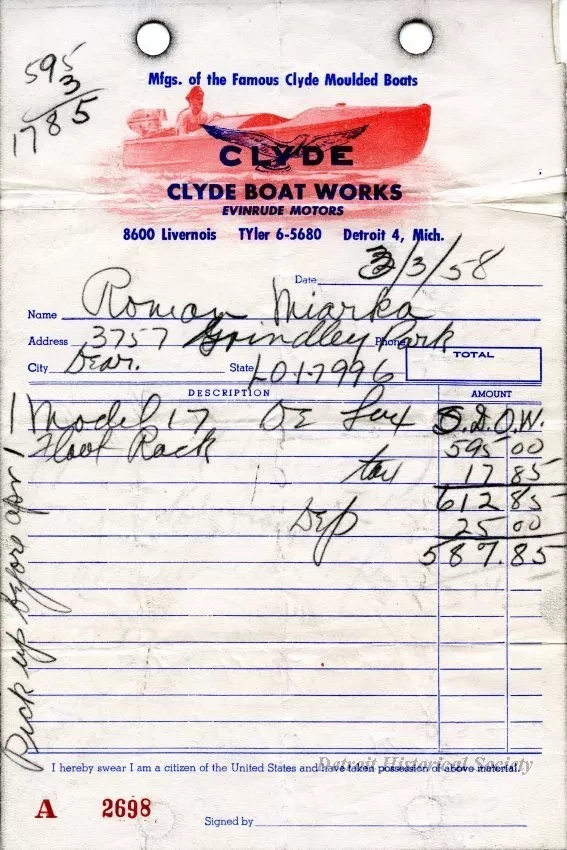 595
3
1785
Mfgs. of the Famous Clyde Moulded Boats
CLYDE
CLYDE BOAT WORKS
EVINRUDE MOTORS
8600 Livernois TYler 6-5680 Detroit 4, Mich.
Date 3/3/58
Name Roman Miarka
Address 3757 Grindley Park Phone
City Dear. State LO1-7996
TOTAL
DESCRIPTION AMOUNT
1 Model 17 De Lux S.D.O.W.
Floor Rack 595 00
tax 17 85
612 85
Dep 25 00
587.85
Pick up before apr 1
I hereby swear I am a citizen of the United States and have taken possession of above material.
Detroit Historical Society
A 2698
Signed by